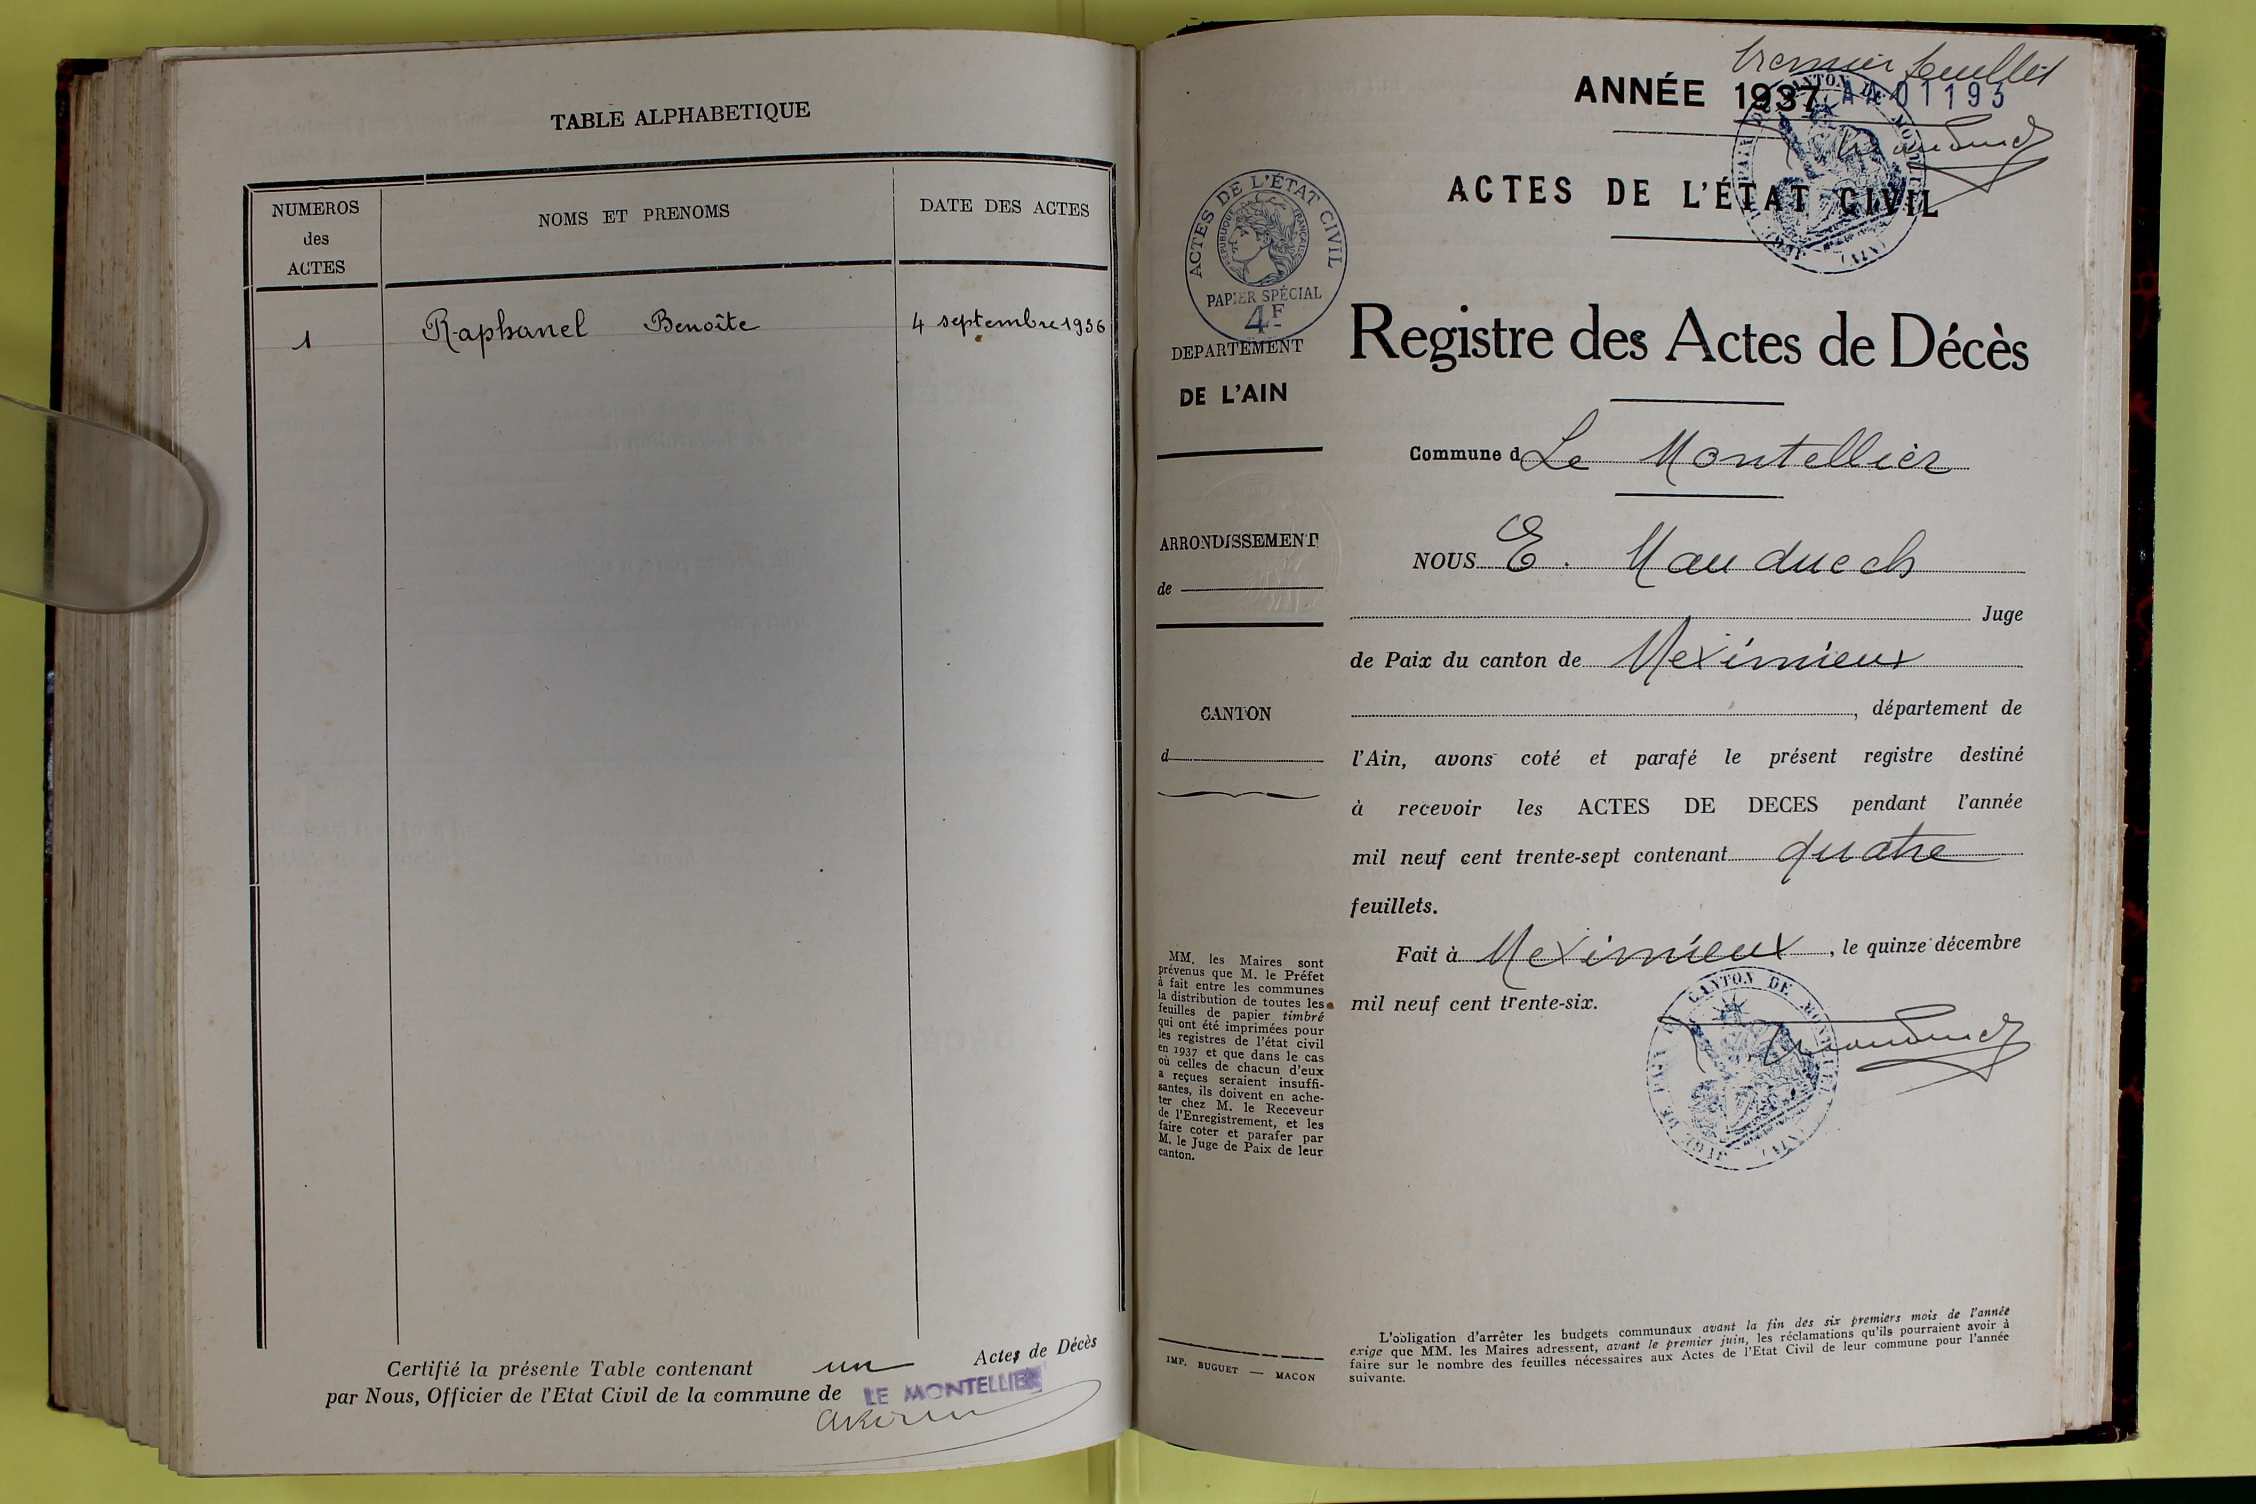 TABLE ALPHABETIQUE
NUMEROS
des
ACTES
NOMS ET PRENOMS
DATE DES ACTES
1
Raphanel Benoîte
4 septembre 1936
Certifié la présente Table contenant un Actes de Décès
par Nous, Officier de l'Etat Civil de la commune de LE MONTELLIER
premier feuillet
ANNÉE 1937
AA01193
ACTES DE L'ÉTAT CIVIL
ACTES DE L'ÉTAT CIVIL
RÉPUBLIQUE FRANÇAISE
PAPIER SPÉCIAL
4F
DEPARTEMENT
DE L'AIN
Registre des Actes de Décès
Commune d Le Montellier
ARRONDISSEMENT
de
CANTON
d
NOUS E. Mauduech
Juge
de Paix du canton de Meximieux
, département de
l'Ain, avons coté et parafé le présent registre destiné
à recevoir les ACTES DE DECES pendant l'année
mil neuf cent trente-sept contenant quatre
feuillets.
Fait à Meximieux, le quinze décembre
mil neuf cent trente-six.
MM. les Maires sont
prévenus que M. le Préfet
à fait entre les communes
la distribution de toutes les
feuilles de papier timbré
qui ont été imprimées pour
les registres de l'état civil
en 1937 et que dans le cas
où celles de chacun d'eux
a reçues seraient insuffi-
santes, ils doivent en ache-
ter chez M. le Receveur
de l'Enregistrement, et les
faire coter et parafer par
M. le Juge de Paix de leur
canton.
IMP. BUGUET — MACON
L'obligation d'arrêter les budgets communaux avant la fin des six premiers mois de l'année
exige que MM. les Maires adressent, avant le premier juin, les réclamations qu'ils pourraient avoir à
faire sur le nombre des feuilles nécessaires aux Actes de l'Etat Civil de leur commune pour l'année
suivante.